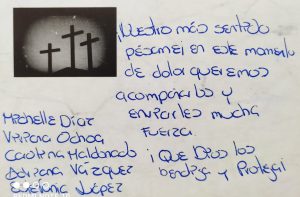 ¡Nuestro más sentido
pésame! en este momento
de dolor queremos
acompañarlos y
enviarles mucha
fuerza.
¡Que Dios los
bendiga y Proteja!
Michelle Díaz
Viviana Ochoa
Carolina Maldonado
Adriana Vázquez
Estefanía López